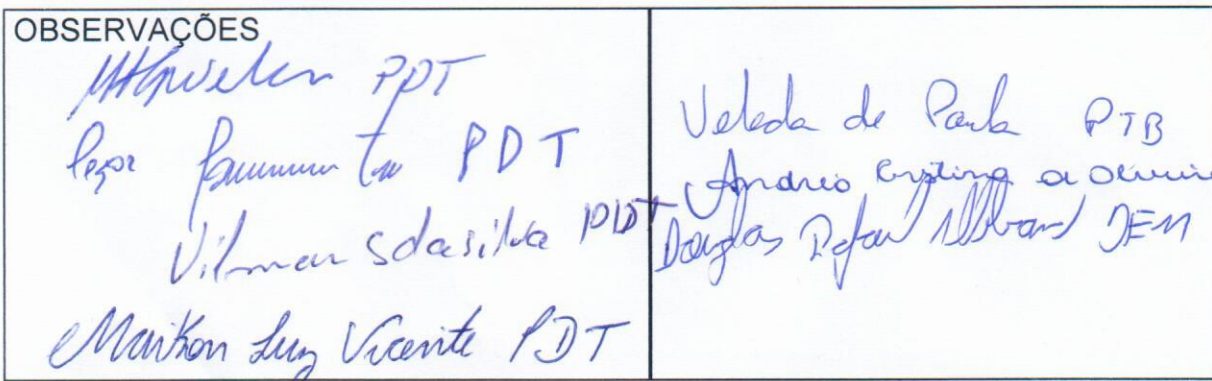 OBSERVAÇÕES
PDT
PDT
Vilmar S da silva PDT
Maikon Luz Vicente PDT
Veleda de Paula PTB
Andreia Cristina de Oliveira
Douglas Rafael DEM